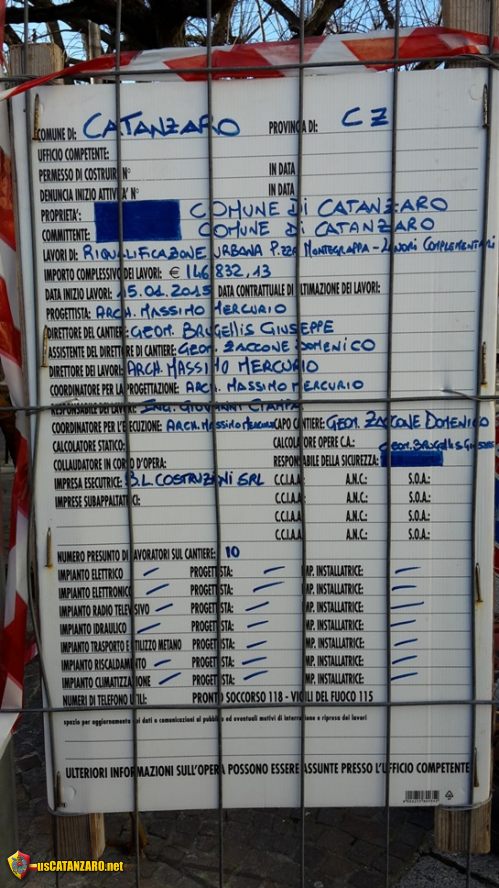 COMUNE DI: CATANZARO PROVINCIA DI: CZ
UFFICIO COMPETENTE:
PERMESSO DI COSTRUIRE N° IN DATA
DENUNCIA INIZIO ATTIVITA' N° IN DATA
PROPRIETA': COMUNE DI CATANZARO
COMMITTENTE: COMUNE DI CATANZARO
LAVORI DI: RIQUALIFICAZIONE URBANA P.ZZA MONTEGRAPPA - LAVORI COMPLEMENTARI
IMPORTO COMPLESSIVO DEI LAVORI: € 146.832,13
DATA INIZIO LAVORI: 15.01.2015 DATA CONTRATTUALE DI ULTIMAZIONE DEI LAVORI:
PROGETTISTA: ARCH. MASSIMO MERCURIO
DIRETTORE DEL CANTIERE: GEOM. BRUGELLIS GIUSEPPE
ASSISTENTE DEL DIRETTORE DI CANTIERE: GEOM. ZACCONE DOMENICO
DIRETTORE DEI LAVORI: ARCH. MASSIMO MERCURIO
COORDINATORE PER LA PROGETTAZIONE: ARCH. MASSIMO MERCURIO
RESPONSABILE DEI LAVORI: ING. GIOVANNI CIAMPA
COORDINATORE PER L'ESECUZIONE: ARCH. MASSIMO MERCURIO CAPO CANTIERE: GEOM. ZACCONE DOMENICO
CALCOLATORE STATICO: CALCOLATORE OPERE C.A.: GEOM. BRUGELLIS GIUSEPPE
COLLAUDATORE IN CORSO D'OPERA: RESPONSABILE DELLA SICUREZZA:
IMPRESA ESECUTRICE: B.L. COSTRUZIONI SRL C.C.I.A.A.: A.N.C.: S.O.A.:
IMPRESE SUBAPPALTATRICI: C.C.I.A.A.: A.N.C.: S.O.A.:
C.C.I.A.A.: A.N.C.: S.O.A.:
C.C.I.A.A.: A.N.C.: S.O.A.:
NUMERO PRESUNTO DI LAVORATORI SUL CANTIERE: 10
IMPIANTO ELETTRICO — PROGETTISTA: — IMP. INSTALLATRICE: —
IMPIANTO ELETTRONICO — PROGETTISTA: — IMP. INSTALLATRICE: —
IMPIANTO RADIO TELEVISIVO — PROGETTISTA: — IMP. INSTALLATRICE: —
IMPIANTO IDRAULICO — PROGETTISTA: — IMP. INSTALLATRICE: —
IMPIANTO TRASPORTO E UTILIZZO METANO PROGETTISTA: — IMP. INSTALLATRICE: —
IMPIANTO RISCALDAMENTO — PROGETTISTA: — IMP. INSTALLATRICE: —
IMPIANTO CLIMATIZZAZIONE — PROGETTISTA: — IMP. INSTALLATRICE: —
NUMERI DI TELEFONO UTILI: PRONTO SOCCORSO 118 - VIGILI DEL FUOCO 115
spazio per aggiornamento dei dati o comunicazioni al pubblico ed eventuali motivi di interruzione e ripresa dei lavori
ULTERIORI INFORMAZIONI SULL'OPERA POSSONO ESSERE ASSUNTE PRESSO L'UFFICIO COMPETENTE
usCATANZARO.net